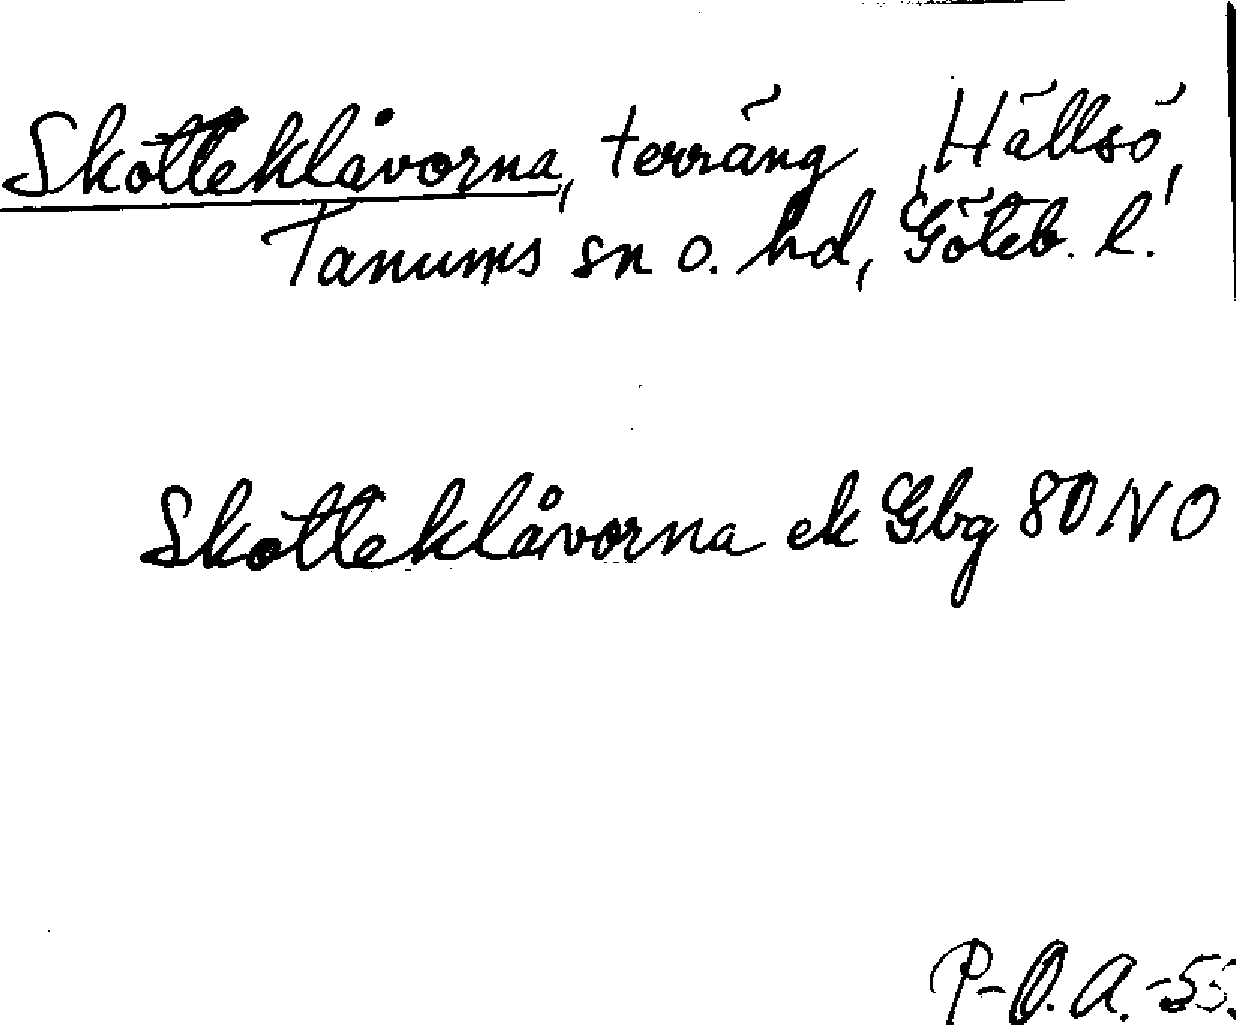 Skötteklåvorna, terräng, Hällsö,
Tanums sn o. hd, Göteb. l.
Skötteklåvorna ek Gbg 80 NO
P-O.A.-55.